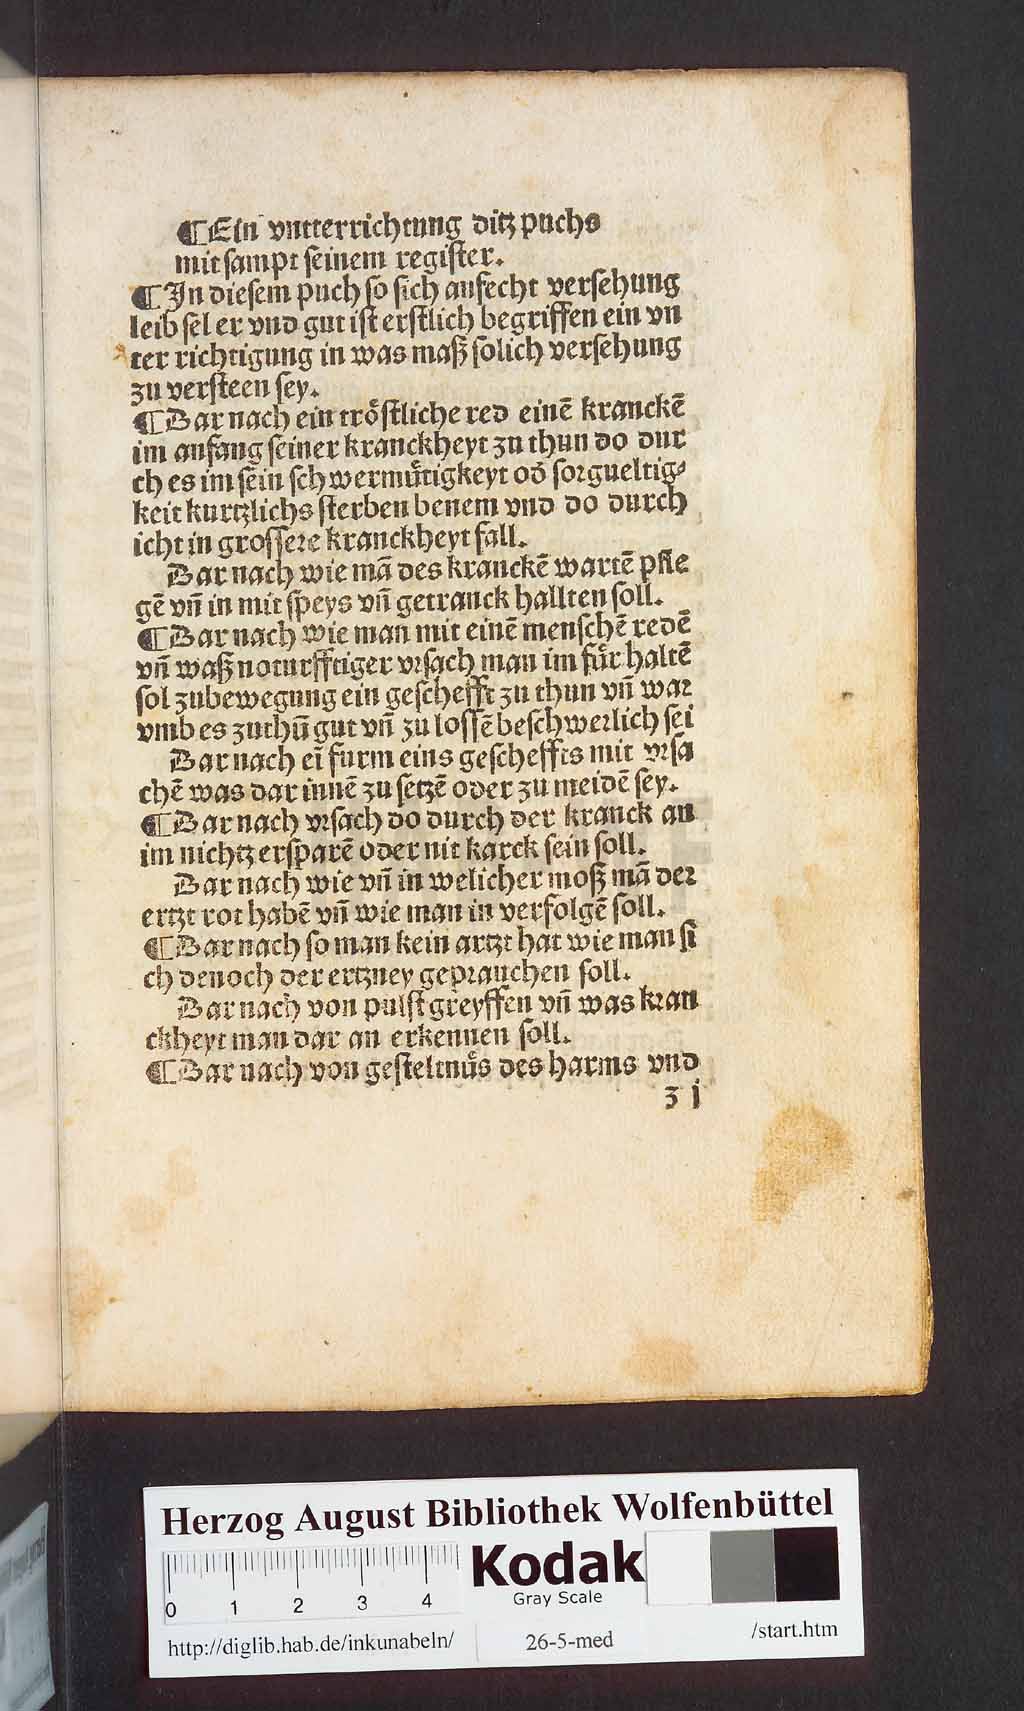 ¶Ein vntterrichtung ditz puchs
mit sampt seinem register.
¶In diesem puch so sich anfecht versehung
leib sel er vnd gut ist erstlich begriffen ein vn
ter richtigung in was maß solich versehung
zu versteen sey.
¶Dar nach ein tröstliche red einē kranckē
im anfang seiner kranckheyt zu thun do dur
ch es im sein schwermůtigkeyt od̄ sorgueltig⸗
keit kurtzlichs sterben benem vnd do durch
icht in grossere kranckheyt fall.
Dar nach wie mā des kranckē wartē pfle
gē vn̄ in mit speys vn̄ getranck hallten soll.
¶Dar nach wie man mit einē menschē redē
vn̄ waß noturfftiger vrsach man im fůr haltē
sol zubewegung ein geschefft zu thun vn̄ war
vmb es zuthū gut vn̄ zu lossē beschwerlich sei
Dar nach eī furm eins gescheffts mit vrsa
chē was dar innē zu setzē oder zu meidē sey.
¶Dar nach vrsach do durch der kranck an
im nichtz ersparē oder nit karck sein soll.
Dar nach wie vn̄ in welicher moß mā der
ertzt rot habē vn̄ wie man in verfolgē soll.
¶Dar nach so man kein artzt hat wie man si
ch denoch der ertzney geprauchen soll.
Dar nach von pulst greyffen vn̄ was kran
ckheyt man dar an erkennen soll.
¶Dar nach von gesteltnůs des harms vnd
3 j
Herzog August Bibliothek Wolfenbüttel
0 1 2 3 4
Kodak
Gray Scale
http://diglib.hab.de/inkunabeln/ 26-5-med /start.htm